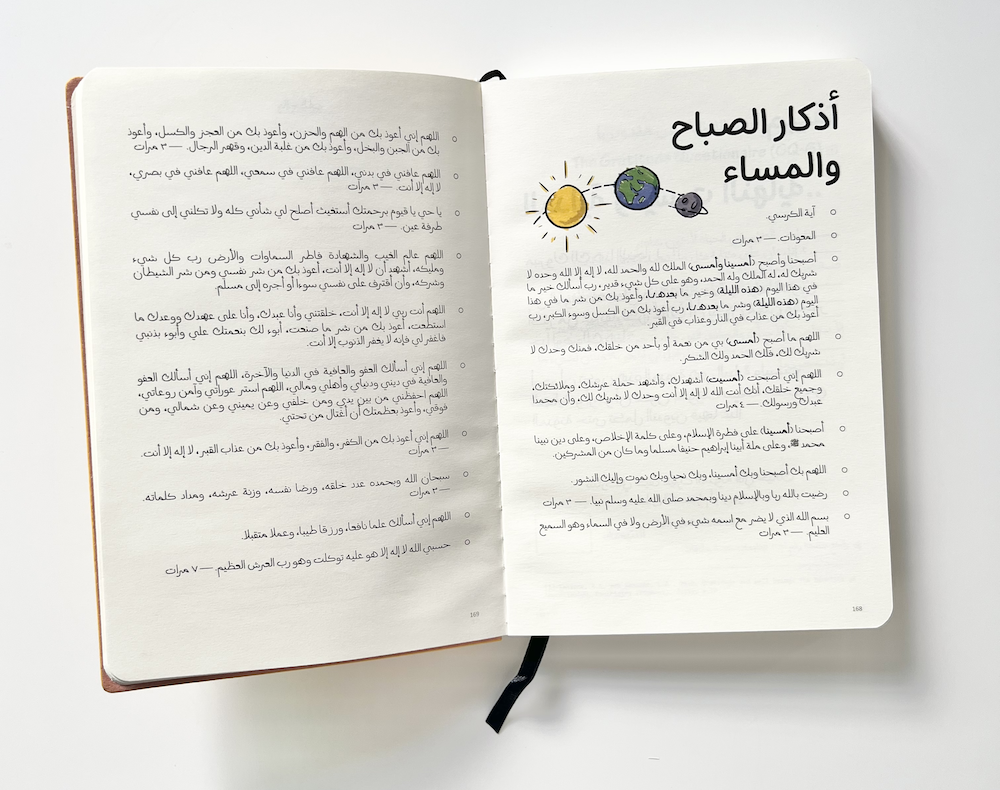 أذكار الصباح
والمساء
آية الكرسي.
المعوذات. — ٣ مرات
أصبحنا وأصبح (أمسينا وأمسى) الملك لله والحمد لله، لا إله إلا الله وحده لا
شريك له، له الملك وله الحمد، وهو على كل شيء قدير، رب أسألك خير ما
في هذا اليوم (هذه الليلة) وخير ما بعده/ـا، وأعوذ بك من شر ما في هذا
اليوم (هذه الليلة) وشر ما بعده/ـا، رب أعوذ بك من الكسل وسوء الكبر، رب
أعوذ بك من عذاب في النار وعذاب في القبر.
اللهم ما أصبح (أمسى) بي من نعمة أو بأحد من خلقك، فمنك وحدك لا
شريك لك، فلك الحمد ولك الشكر.
اللهم إني أصبحت (أمسيت) أشهدك، وأشهد حملة عرشك، وملائكتك،
وجميع خلقك، أنك أنت الله لا إله إلا أنت وحدك لا شريك لك، وأن محمدا
عبدك ورسولك. — ٤ مرات
أصبحنا (أمسينا) على فطرة الإسلام، وعلى كلمة الإخلاص، وعلى دين نبينا
محمد ﷺ، وعلى ملة أبينا إبراهيم حنيفا مسلما وما كان من المشركين.
اللهم بك أصبحنا وبك أمسينا، وبك نحيا وبك نموت وإليك النشور.
رضيت بالله ربا وبالإسلام دينا وبمحمد صلى الله عليه وسلم نبيا. — ٣ مرات
بسم الله الذي لا يضر مع اسمه شيء في الأرض ولا في السماء وهو السميع
العليم. — ٣ مرات
168
اللهم إني أعوذ بك من الهم والحزن، وأعوذ بك من العجز والكسل، وأعوذ
بك من الجبن والبخل، وأعوذ بك من غلبة الدين، وقهر الرجال. — ٣ مرات
اللهم عافني في بدني، اللهم عافني في سمعي، اللهم عافني في بصري،
لا إله إلا أنت. — ٣ مرات
يا حي يا قيوم برحمتك أستغيث أصلح لي شأني كله ولا تكلني إلى نفسي
طرفة عين. — ٣ مرات
اللهم عالم الغيب والشهادة فاطر السماوات والأرض رب كل شيء
ومليكه، أشهد أن لا إله إلا أنت، أعوذ بك من شر نفسي ومن شر الشيطان
وشركه، وأن أقترف على نفسي سوءا أو أجره إلى مسلم.
اللهم أنت ربي لا إله إلا أنت، خلقتني وأنا عبدك، وأنا على عهدك ووعدك ما
استطعت، أعوذ بك من شر ما صنعت، أبوء لك بنعمتك علي وأبوء بذنبي
فاغفر لي فإنه لا يغفر الذنوب إلا أنت.
اللهم إني أسألك العفو والعافية في الدنيا والآخرة، اللهم إني أسألك العفو
والعافية في ديني ودنياي وأهلي ومالي، اللهم استر عوراتي وآمن روعاتي،
اللهم احفظني من بين يدي ومن خلفي وعن يميني وعن شمالي، ومن
فوقي، وأعوذ بعظمتك أن أغتال من تحتي.
اللهم إني أعوذ بك من الكفر، والفقر، وأعوذ بك من عذاب القبر، لا إله إلا أنت.
— ٣ مرات
سبحان الله وبحمده عدد خلقه، ورضا نفسه، وزنة عرشه، ومداد كلماته.
— ٣ مرات
اللهم إني أسألك علما نافعا، ورزقا طيبا، وعملا متقبلا.
حسبي الله لا إله إلا هو عليه توكلت وهو رب العرش العظيم. — ٧ مرات
169